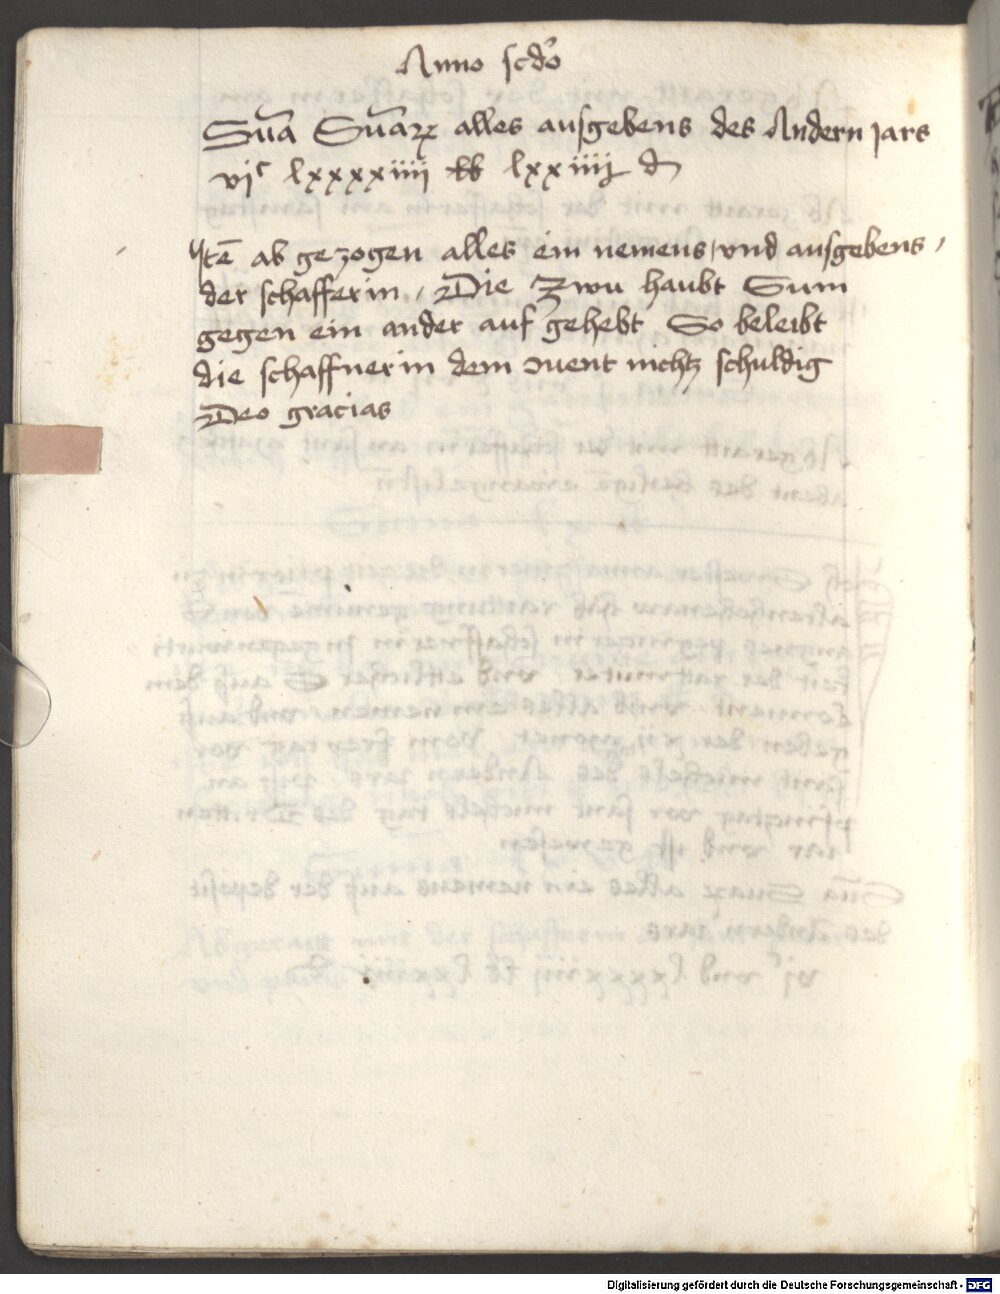 Anno scdo
Sūa Sūaꝝ alles ausgebens des Andern Jars
vjᶜ lxxxxiiij lb lxxiiij d
Itē ab gezogen alles ein nemens / vnd ausgebens /
der schafferin / Die Zwu haubt Sum
gegen ein ander auf gehebt So beleibt
die schaffnerin dem 9uent nichtz schuldig
Deo gracias
Digitalisierung gefördert durch die Deutsche Forschungsgemeinschaft - DFG